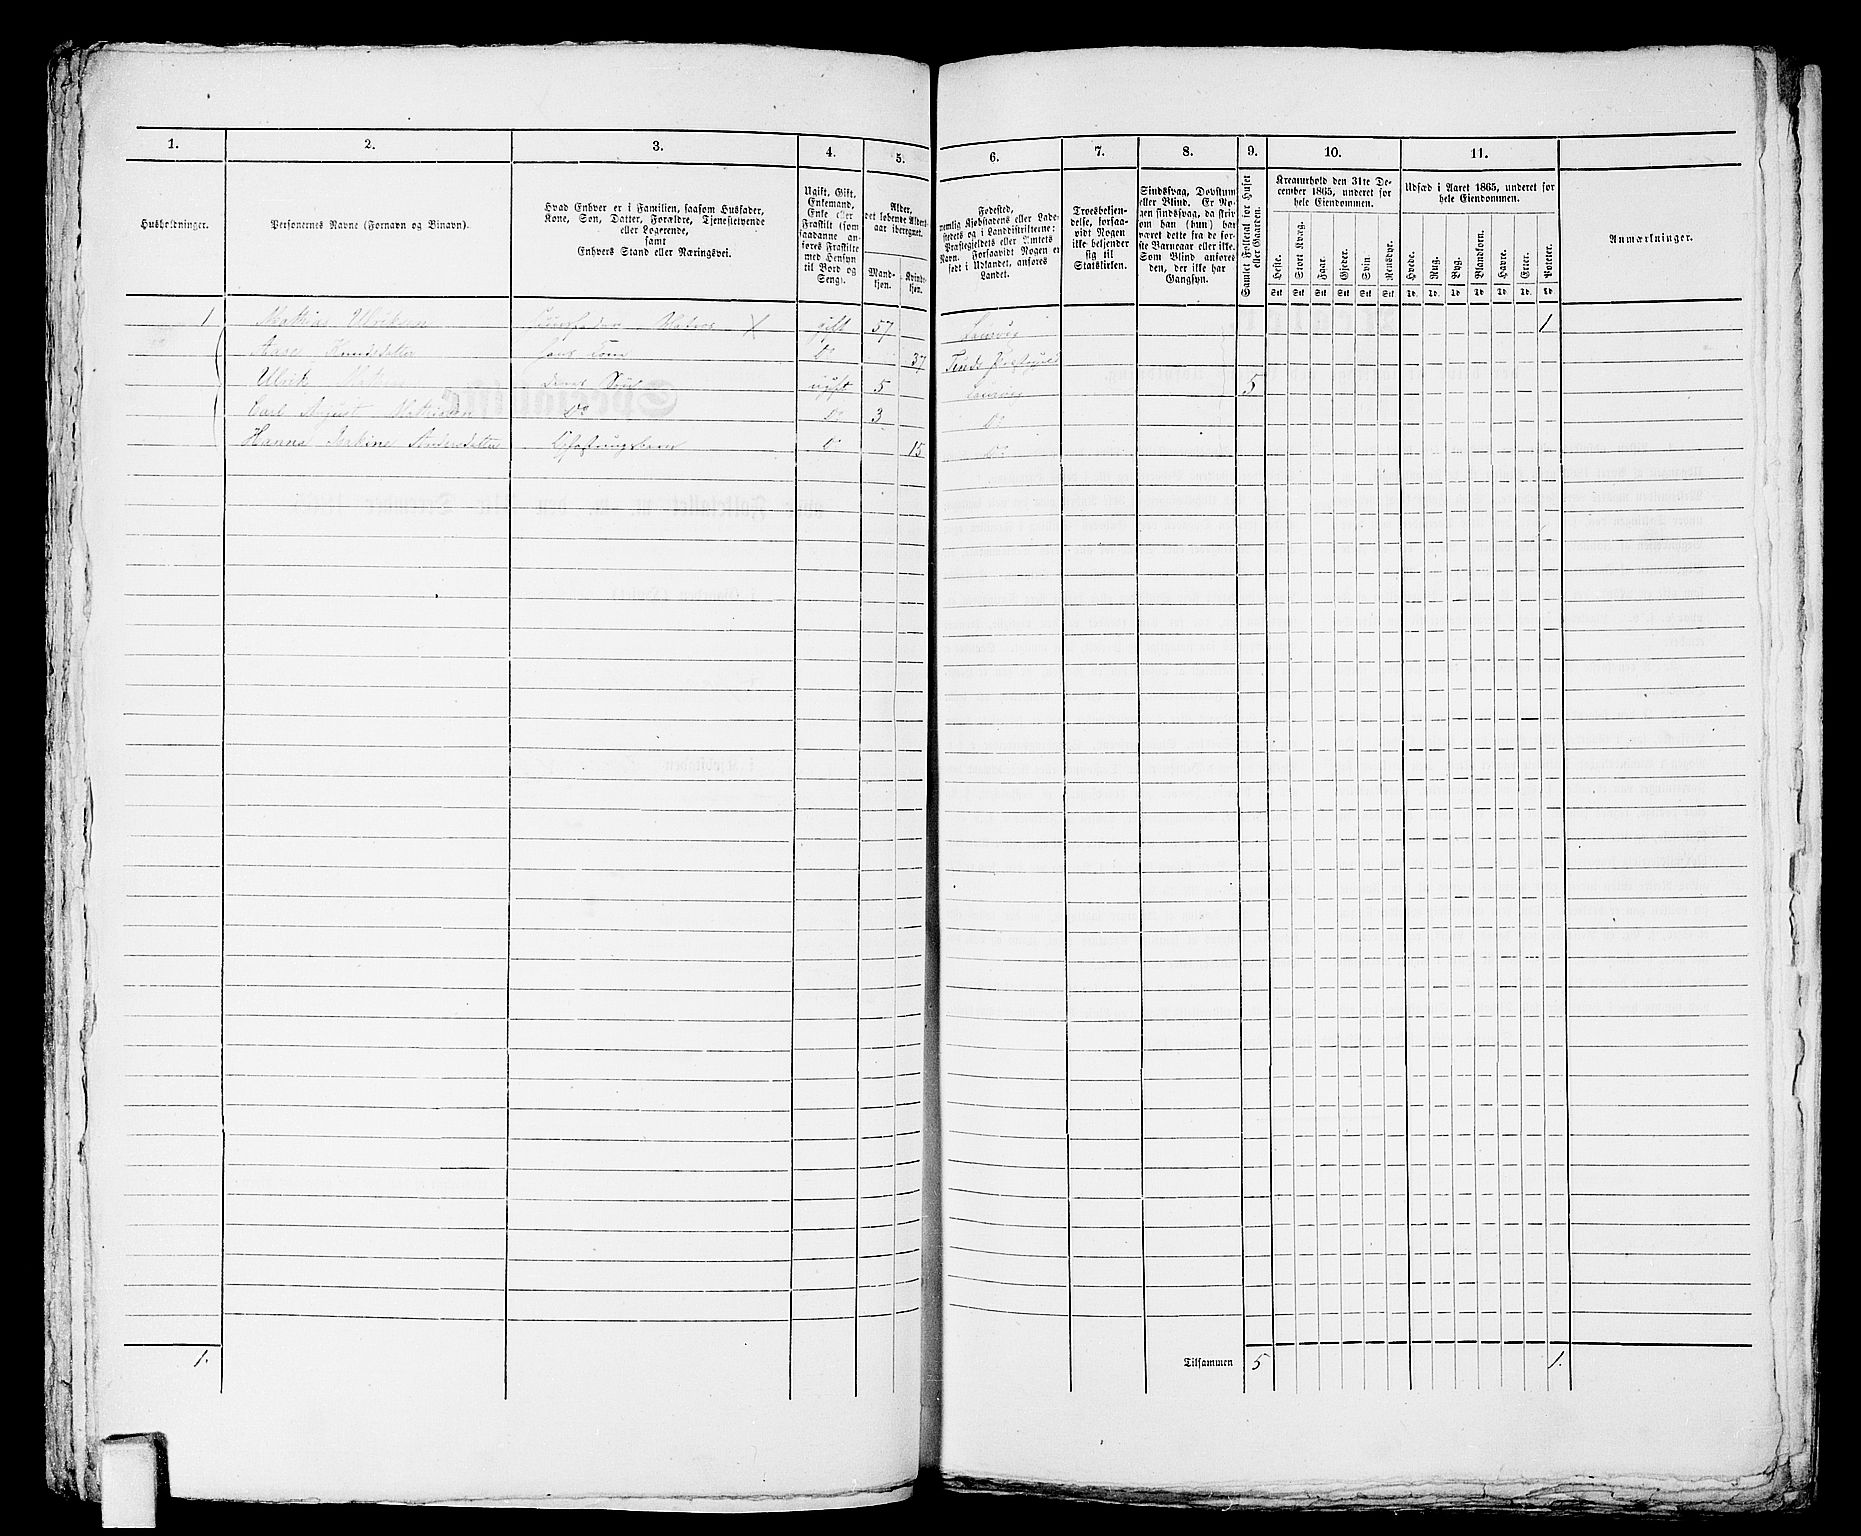 1.
2.
3.
4.
5.
Husholdninger.
Personernes Navne (Fornavn og Binavn).
Hvad Enhver er i Familien, saasom Husfader,
Kone, Søn, Datter, Forældre, Tjenestetyende
eller Logerende,
samt
Enhvers Stand eller Næringsvei.
Ugift, Gift,
Enkemand,
Enke eller
Fraskilt (som
saadanne an-
føres Fraskilte
med Hensyn
til Bord og
Seng).
Alder,
det løbende Alders-
aar iberegnet.
Mand-
kjøn.
Kvinde-
kjøn.
1 Mathias Ulriksen Huusfader Matros X gift 57
Aase Knudsdatter hans Kone Do 37
Ulrik deres Søn ugift 5
Carl August Mathisen Do Do 3
Hanna Andersdatter Do 15
1.
6.
7.
8.
9.
10.
11.
Fødested,
nemlig Kjøbstadens eller Lade-
stedets og i Landdistrikterne:
Præstegjeldets eller Amtets
Navn. Forsaavidt Nogen er
født i Udlandet, anføres
Landet.
Troesbekjen-
delse, forsaa-
vidt Nogen
ikke bekjender
sig til
Statskirken.
Sindssvag, Døvstum
eller Blind. Er No-
gen sindssvag, da skriv
om han (hun) har
været dette fra de før-
ste Barneaar eller ikke.
Som Blind anføres
den, der ikke har
Gangsyn.
Samlet Folketal for Huset
eller Gaarden.
Kreaturhold den 31te De-
cember 1865, underet for
hele Eiendommen.
Heste.
Stort Kvæg.
Faar.
Gjeder.
Svin.
Rensdyr.
Stk Stk Stk Stk Stk Stk
Udsæd i Aaret 1865, underet for
hele Eiendommen.
Hvede.
Rug.
Byg.
Blandkorn.
Havre.
Erter.
Poteter.
Td. Td. Td. Td. Td. Td. Td.
Anmærkninger.
Laurvig 1
Laurvig 5
Do
Do
Tilsammen 5 1.